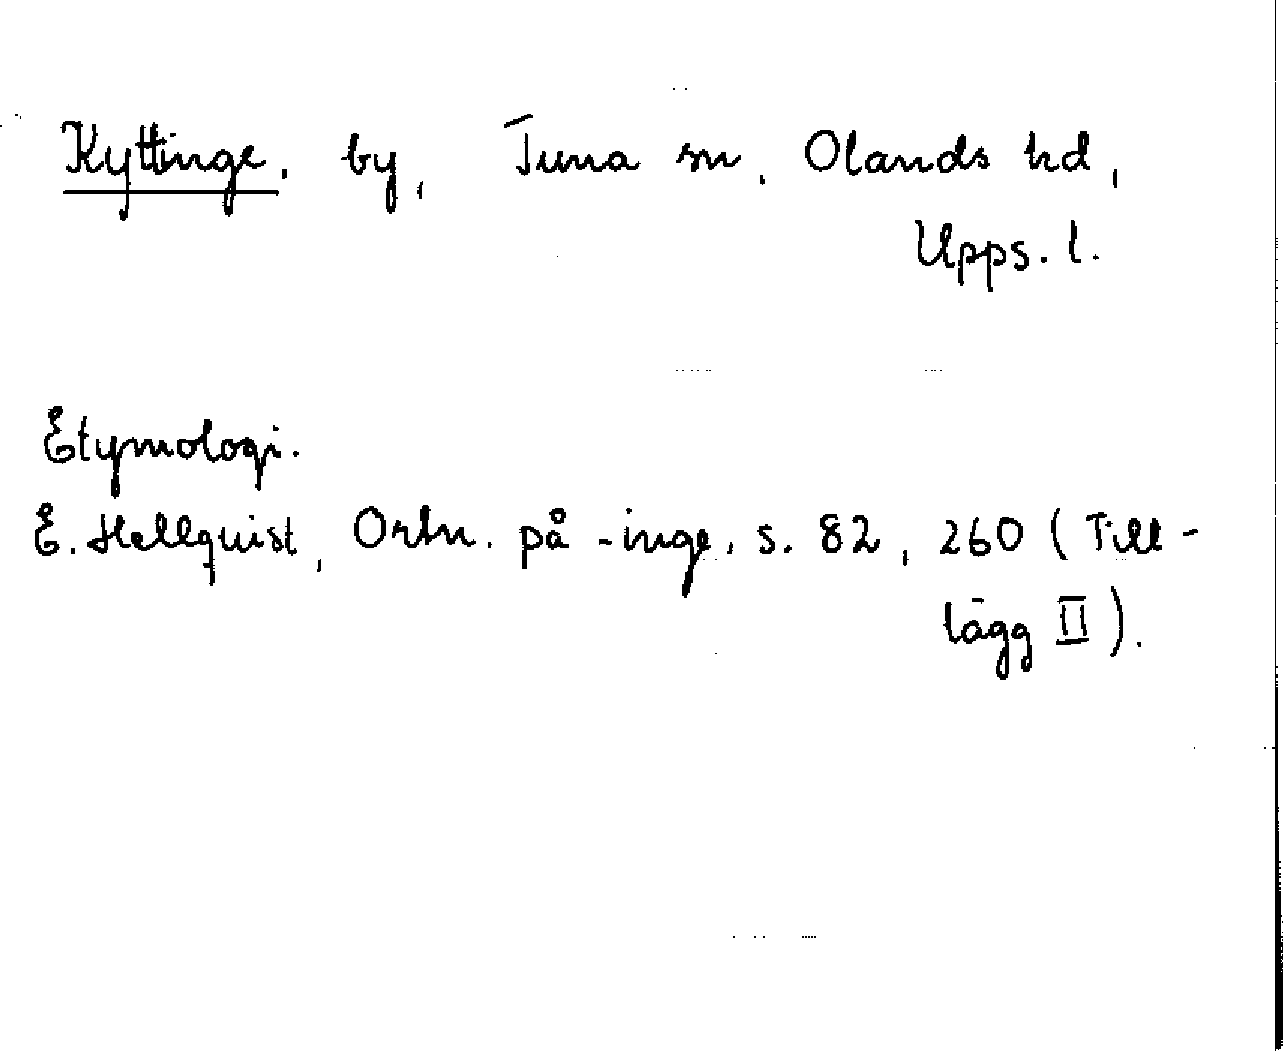 Kyttinge, by, Tuna sn, Olands hd,
Upps. l.
Etymologi.
E. Hellquist, Ortn. på -inge, s. 82, 260 (Till-
lägg II).